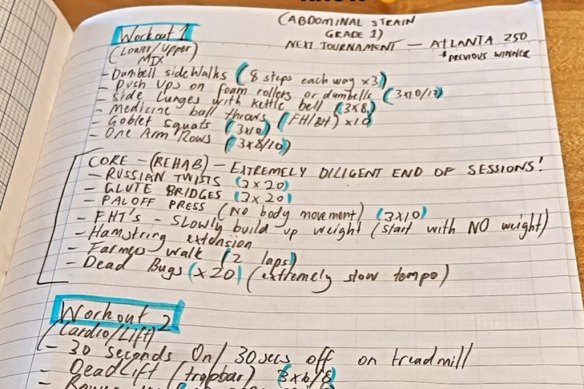 (ABDOMINAL STRAIN
GRADE 1)
NEXT TOURNAMENT — ATLANTA 250
* PREVIOUS WINNER
Workout 1
(Lower/Upper)
MIX
- Dumbell side Walks (8 steps each way x3)
- Push Ups on foam rollers or dumbells (3x10/12)
- Side Lunges with Kettle bell (3x8)
- Medicine ball throws (FH/BH) x10
- Goblet Squats (3x10)
- One Arm Rows (3x8/10)
CORE - (REHAB) - EXTREMELY DILIGENT END OF SESSIONS!
- RUSSIAN TWISTS (2x20)
- GLUTE BRIDGES (2x20)
- PALOFF PRESS (No body movement) (3x10)
- FHT's - Slowly build up weight (start with NO weight)
- Hamstring extension
- Farmers Walk (2 laps)
- Dead Bugs (x20) (extremely slow tempo)
Workout 2
(Cardio/Lift)
- 30 Seconds On/30secs off on treadmill
- DeadLift (trapbar) (3x6/8)